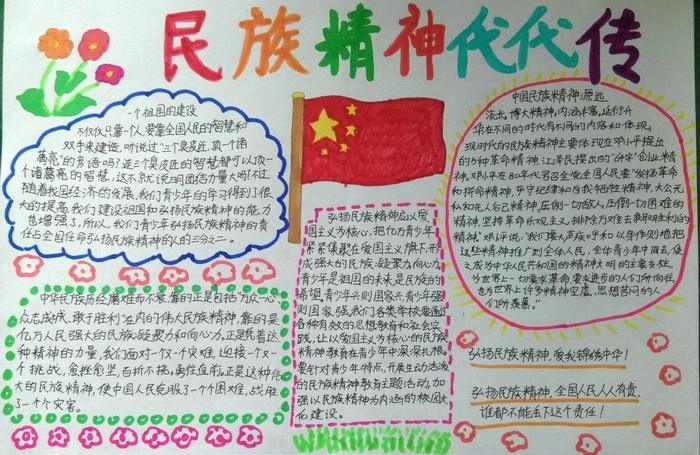 民族精神代代传
一个祖国的建设
不仅仅只靠一人,要靠全国人民的智慧和
双手来建造。听说过"三个臭皮匠,顶一个诸
葛亮"的谚语吗?连三个臭皮匠的智慧都可以顶一
个诸葛亮的智慧,这不就说明团结力量大吗?不过
随着我国经济的发展,我们青少年的学习得到了很
大的提高,我们建设祖国和弘扬民族精神的能力
也增强了,所以,我们青少年弘扬民族精神的责
任占全国任命弘扬民族精神的人的三分之二。
中华民族历经磨难而不衰,靠的正是包括万众一心、
众志成城,敢于胜利在内的伟大民族精神,靠的是
亿万人民强大的民族凝聚力和向心力。正是凭着这
种精神的力量,我们面对一次一个灾难,迎接一个又一
个挑战,愈挫愈坚,自拆不挠,勇往直前。正是这种伟
大的民族精神,使中国人民克服了一个个困难,战胜
了一个个灾害。
弘扬民族精神应以爱
国主义为核心,把亿万青少年
紧紧集聚在爱国主义旗下,形
成强大的民族凝聚力向心力
青少年是祖国的未来,是民族的
希望,青少年兴则国家兴,青少年强
则国家强,我们各类学校要通过
各种有效的思想教育和社会实
践,让以爱国主义为核心的民族
精神教育在青少年中深深扎根。
要针对青少年特点,开展生动活泼
的民族精神教育主题活动,加
强以民族精神为内涵的校园文
化建设。
中国民族精神:源远
流长,博大精神,内涵丰富,延衍升
华在不同的时代有不同的内容和体现。
现时代的民族精神主要体现在邓小平提出
的各种革命精神,江泽民提出的"64字"创业精
神。邓小平在80年代号召全党全国人民要"发扬革命
和拼命精神,严守纪律和自我牺牲精神,大公无
私和先人后己精神,压倒一切敌人,压倒一切困难的
精神,坚持革命乐观主义,排除万难去争取胜利的
精神"邓小平说:"我们要大声疾呼和以身作则地把
这些精神推广到全体人民、全体青少年中间去,使
之成为中华人民共和国的精神文明的主要支柱,
为世界上一切要求革命、要求进步的人们所向往,
也为世界上许多精神空虚、思想苦闷的人
们所羡慕。"
弘扬民族精神,爱我锦绣中华!
弘扬民族精神,全国人民人人有责,
谁都不能丢下这个责任!